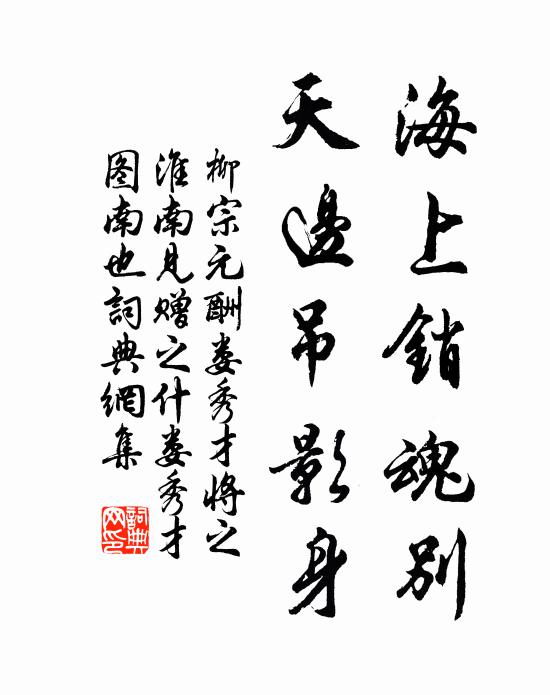 海上銷魂別
天邊吊影身
柳宗元酬娄秀才將之
淮南見贈之什娄秀才
图南也詞典網集
詞典網印